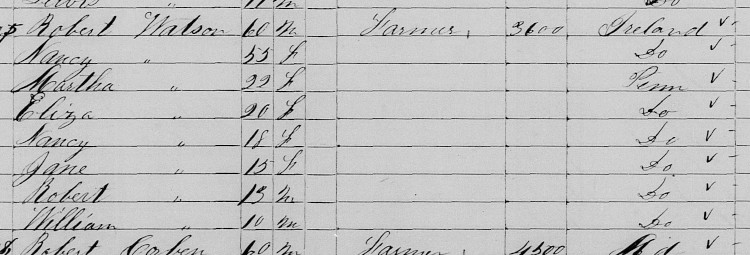 Lewis " 11 m Do
Robert Watson 60 m Farmer 3600 Ireland ✓
Nancy " 55 f Do ✓
Martha " 22 f Penn ✓
Eliza " 20 f Do ✓
Nancy " 18 f Do ✓
Jane " 15 f Do ✓
Robert " 13 m Do ✓
William " 10 m Do ✓
Robert 60 m Farmer 4500 Md